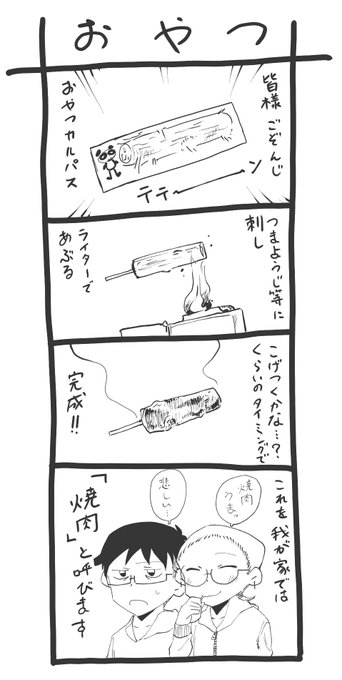 おやつ
皆様 ごぞんじ
おやつカルパス
テテーーン
つまようじ等に
刺し
ライターで
あぶる
こげつくかな…?
くらいのタイミングで
完成!!
これを我が家では
焼肉
悲しい…
「焼肉」と呼びます